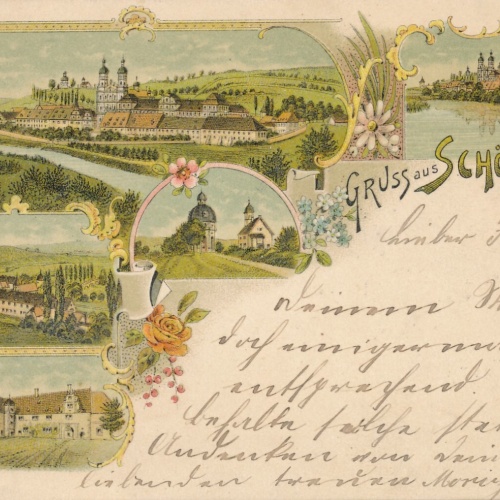 GRUSS aus SCHÖ
Lieber
Deinem
doch einigerma
entsprechend
behalte solche ste
Andenken von Dein
liebenden treuen Moriz